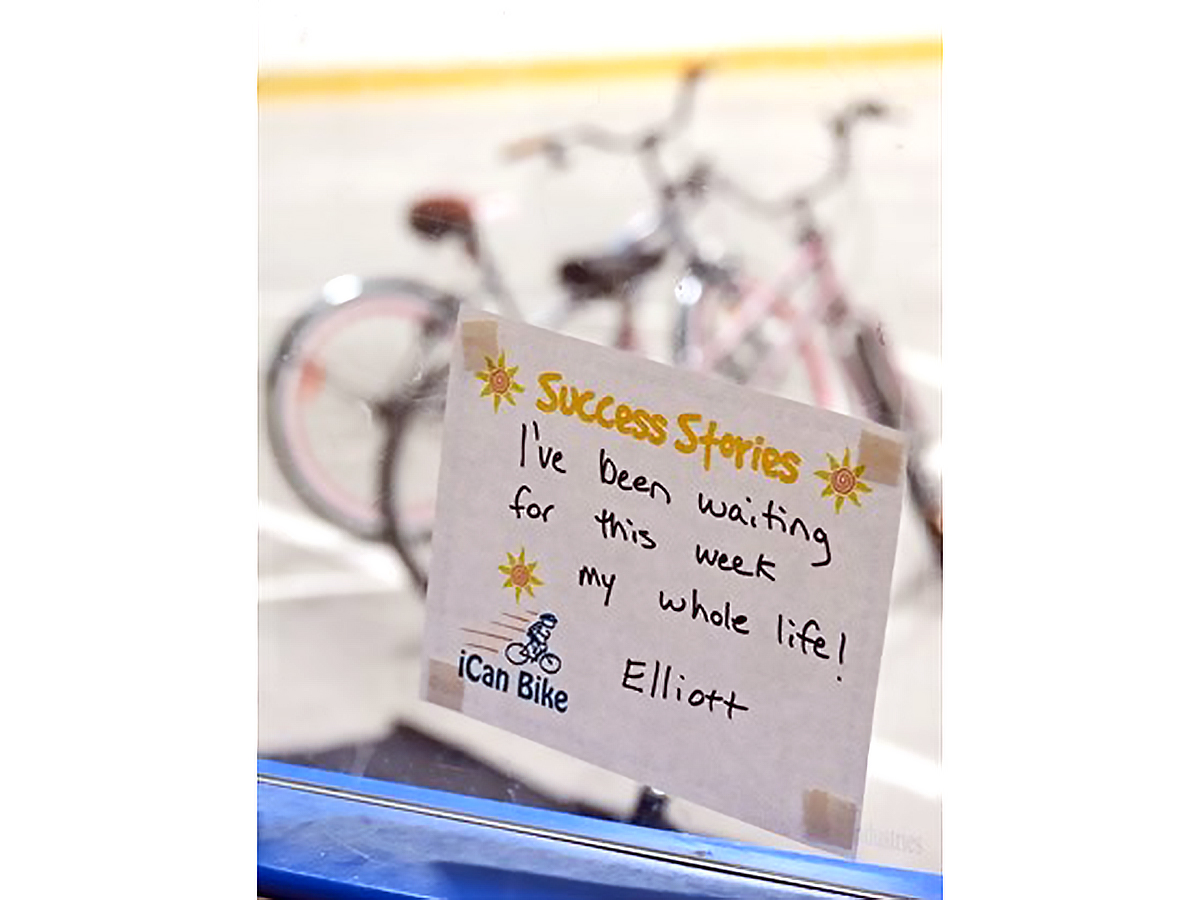 Success Stories
I've been waiting
for this week
my whole life!
iCan Bike
Elliott